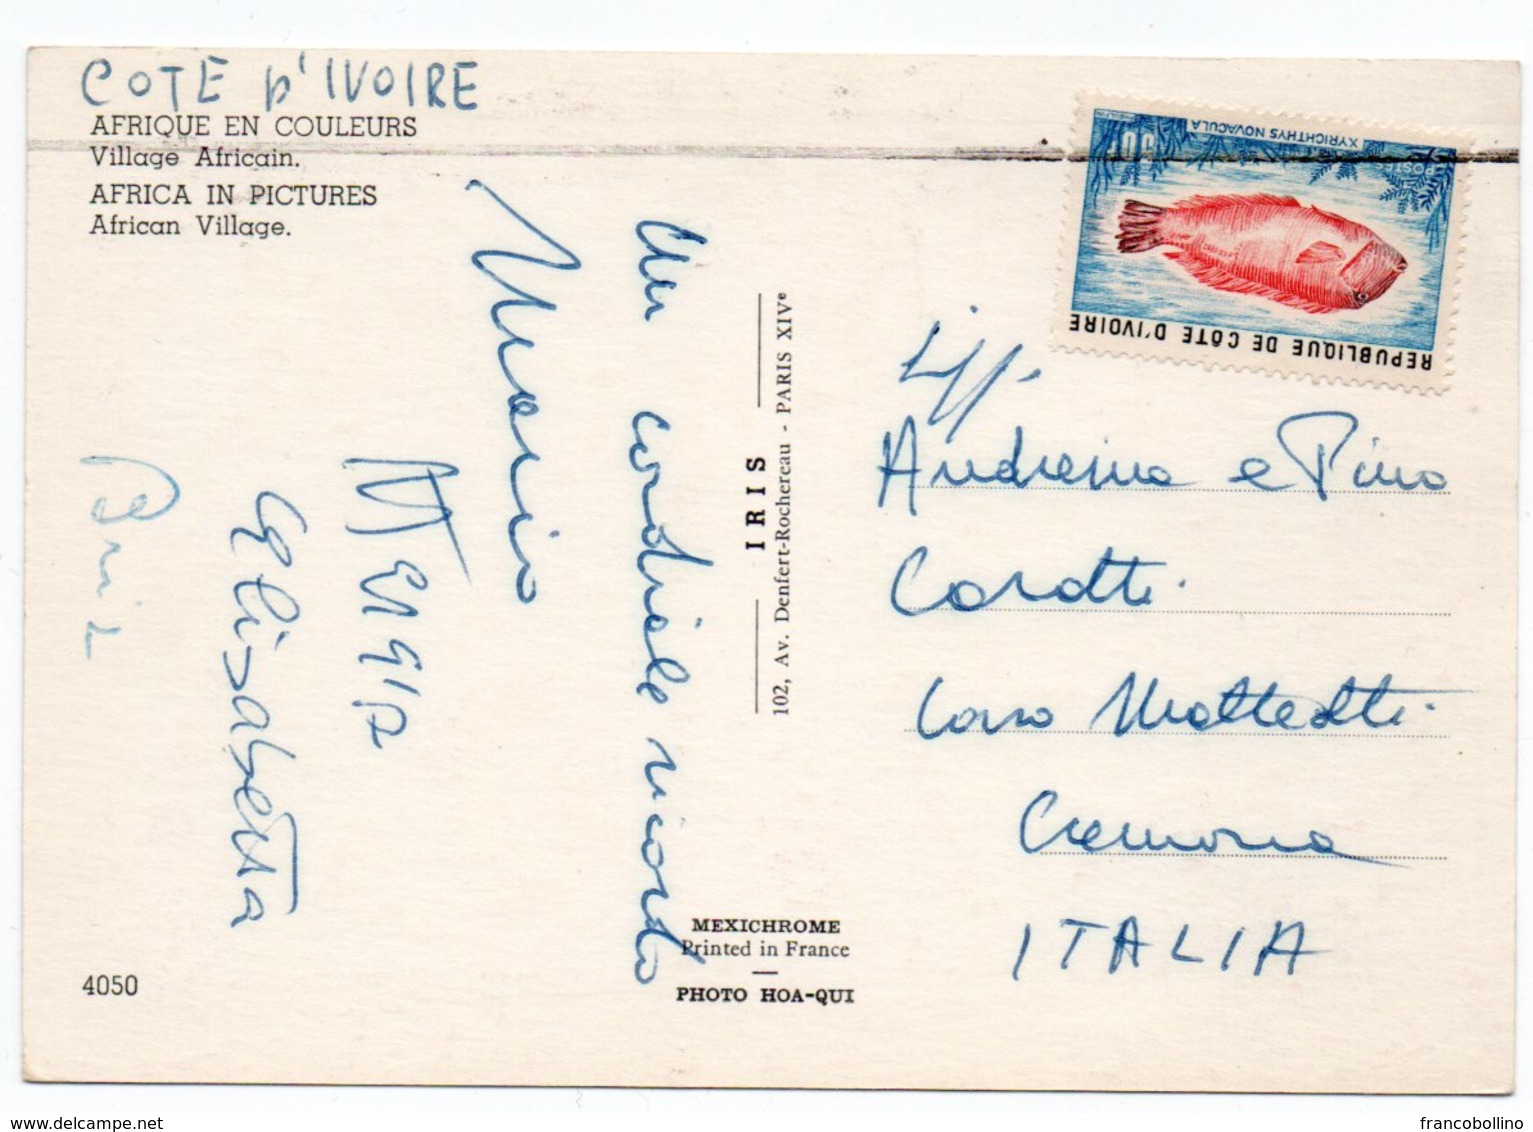 COTE D'IVOIRE
AFRIQUE EN COULEURS
Village Africain.
AFRICA IN PICTURES
African Village.
Un cordiale ricordo
Mario
Elisabetta
4050
IRIS
102, Av. Denfert-Rochereau - PARIS XIVe
MEXICHROME
Printed in France
PHOTO HOA-QUI
REPUBLIQUE DE CÔTE D'IVOIRE
XYRICHTHYS NOVACULA
POSTES
Andreina e Pino
Carotti
Corso Matteotti
Cremona
ITALIA
delcampe.net
francobollino